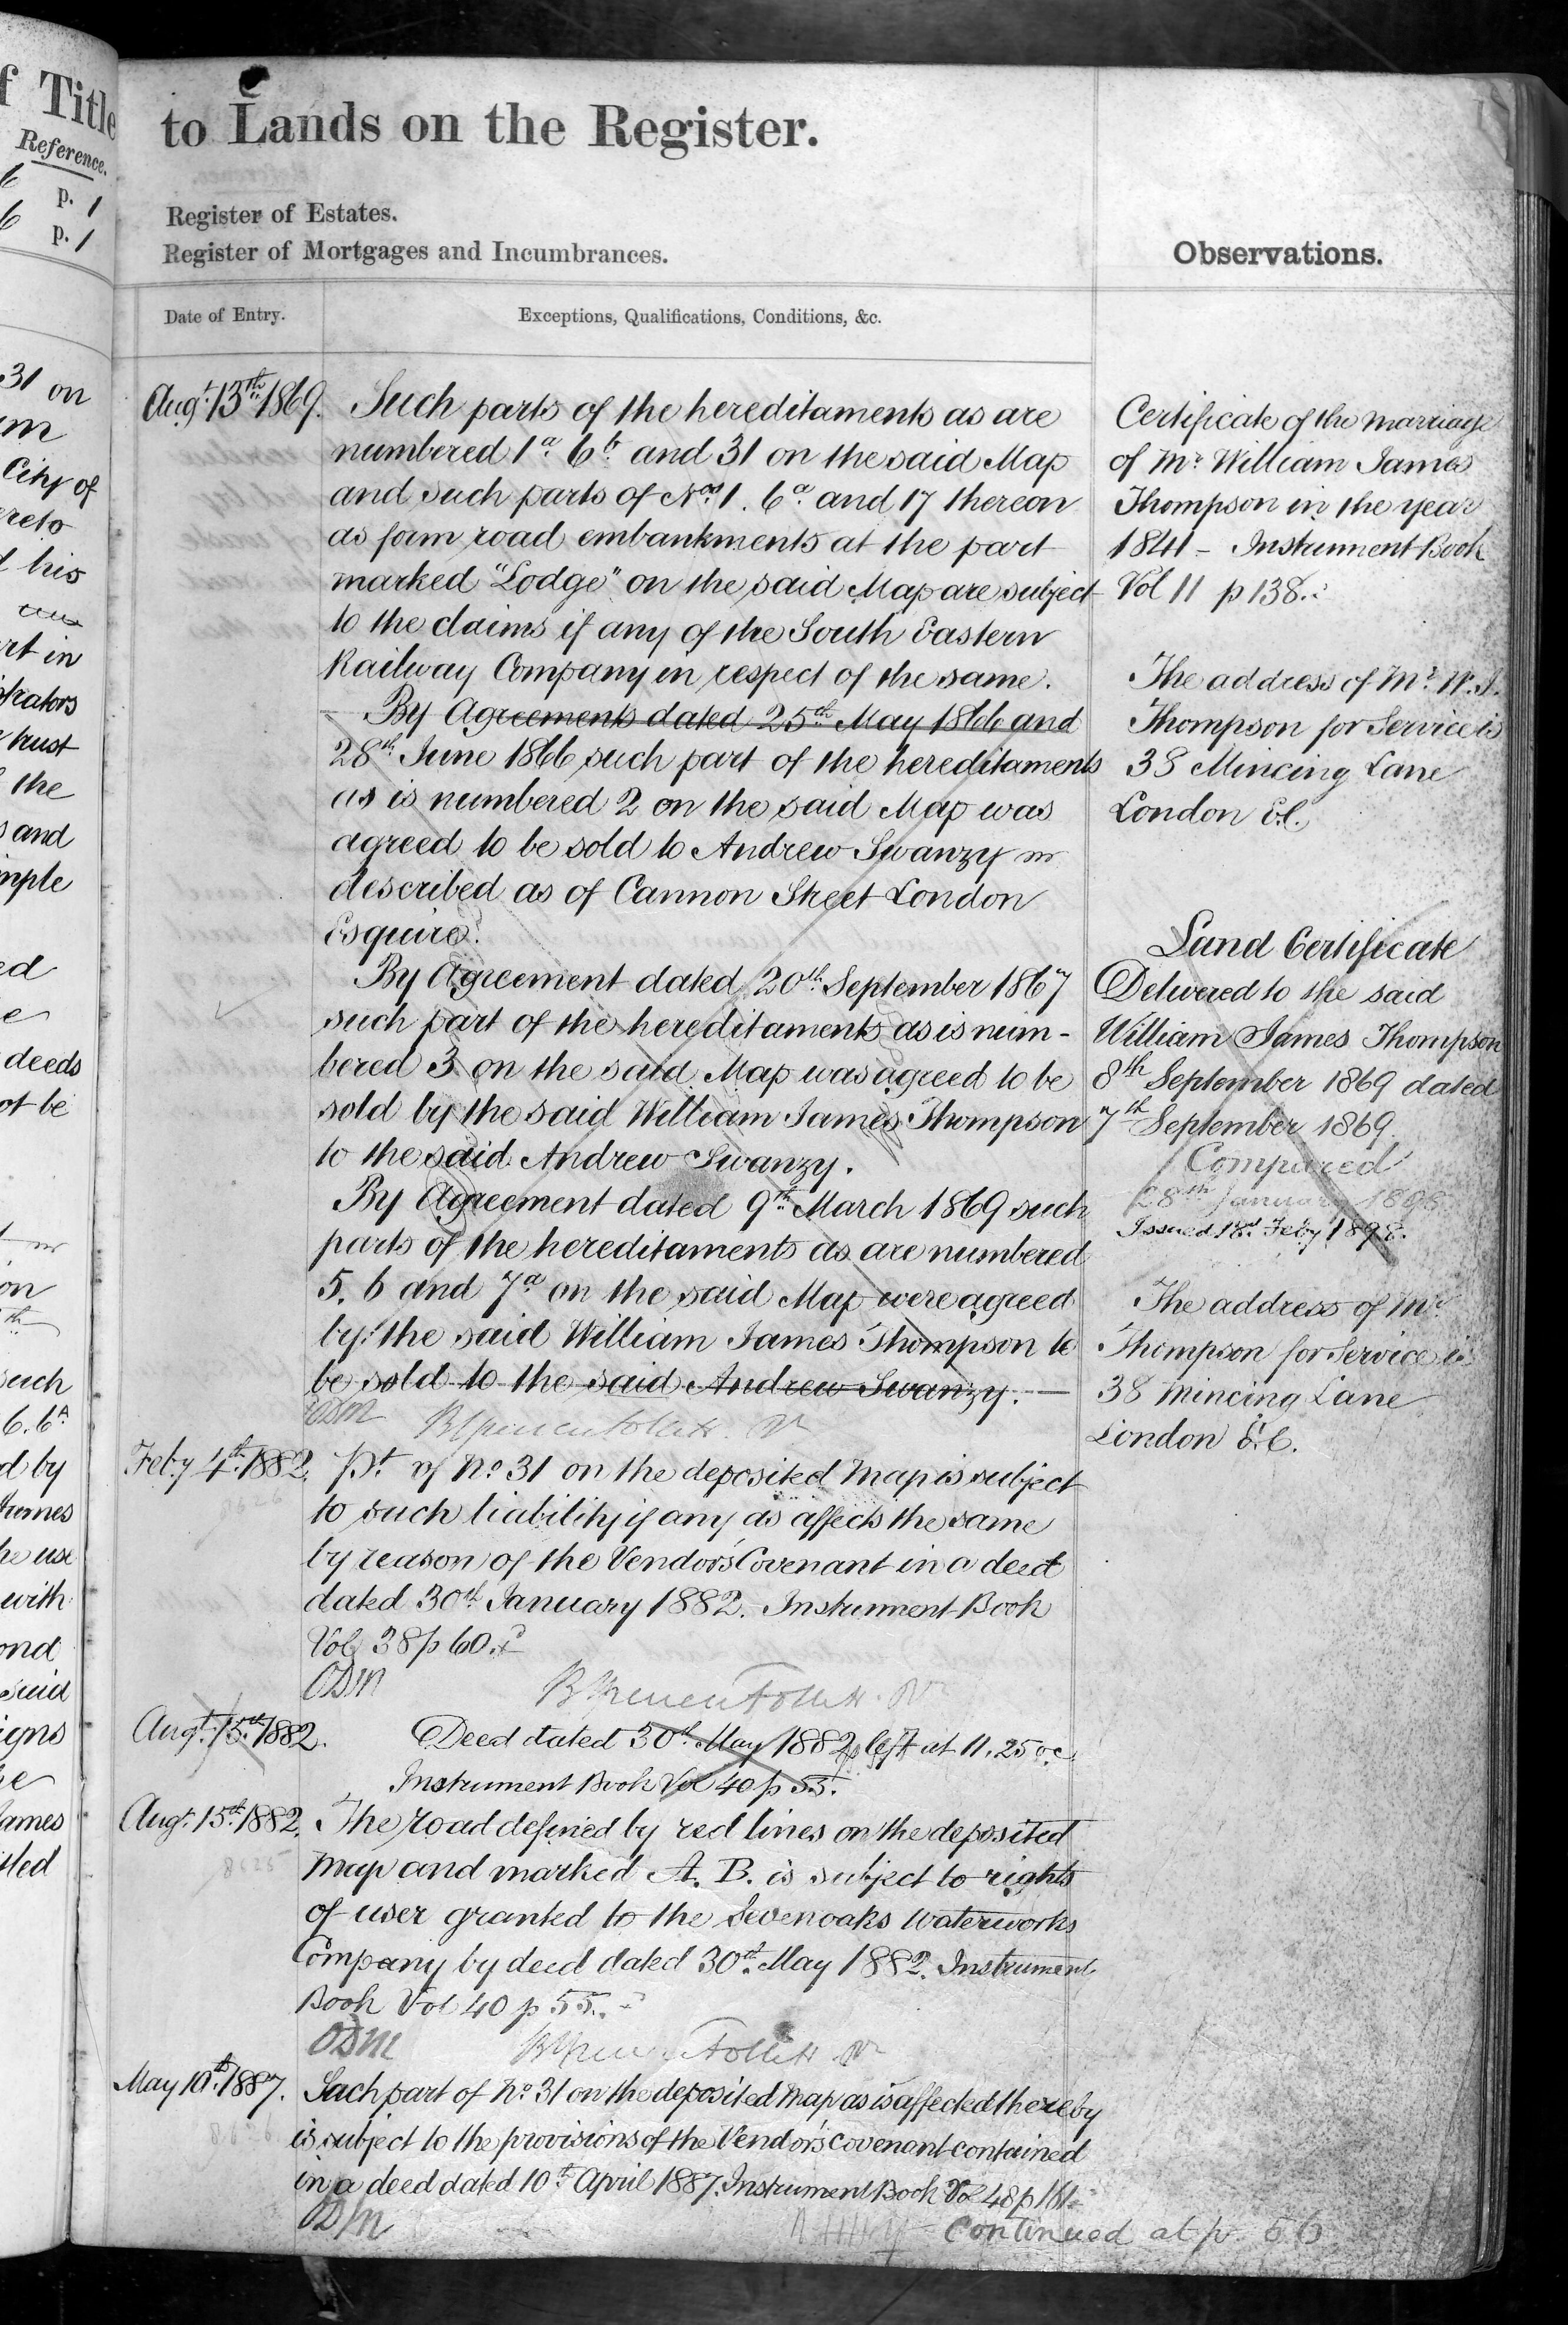 f Title
Reference.
6 p. 1
6 p. 1
31 on
City of
his
rt in
trators
trust
the
and
mple
ed
deeds
ot be
on
such
6. 6A
d by
he use
with
ond
said
igns
ames
to Lands on the Register.
Register of Estates.
Register of Mortgages and Incumbrances.
Date of Entry.
Exceptions, Qualifications, Conditions, &c.
Augt. 13th 1869.
Such parts of the hereditaments as are
numbered 1a 6b and 31 on the said Map
and such parts of Nos 1. 6a and 17 thereon
as form road embankments at the part
marked "Lodge" on the said Map are subject
to the claims if any of the South Eastern
Railway Company in respect of the same.
By Agreements dated 25th May 1866 and
28th June 1866 such part of the hereditaments
as is numbered 2 on the said Map was
agreed to be sold to Andrew Swanzy
described as of Cannon Street London
Esquire.
By Agreement dated 20th September 1867
such part of the hereditaments as is num-
bered 3 on the said Map was agreed to be
sold by the said William James Thompson
to the said Andrew Swanzy.
By Agreement dated 9th March 1869 such
parts of the hereditaments as are numbered
5. 6 and 7a on the said Map were agreed
by the said William James Thompson to
be sold to the said Andrew Swanzy.
ODM
Feby 4th 1882.
Pt of No 31 on the deposited Map is subject
to such liability if any as affects the same
by reason of the Vendors Covenant in a deed
dated 30th January 1882. Instrument Book
Vol 38 p 60.
ODM
Augt. 15th 1882.
Deed dated 30th May 1882 left at 11.25 o.c.
Instrument Book Vol 40 p 55.
Augt. 15th 1882.
8625
The road defined by red lines on the deposited
Map and marked A. B. is subject to rights
of user granted to the Sevenoaks Waterworks
Company by deed dated 30th May 1882. Instrument
Book Vol 40 p 55.
ODM
May 10th 1887.
Such part of No 31 on the deposited Map as is affected thereby
is subject to the provisions of the Vendor's covenant contained
in a deed dated 10th April 1887. Instrument Book Vol 48 p 161
ODM
Continued at p. 56
Observations.
Certificate of the marriage
of Mr William James
Thompson in the year
1841 - Instrument Book
Vol 11 p 138.
The address of Mr W. J.
Thompson for Service is
38 Mincing Lane
London E.C.
Land Certificate
Delivered to the said
William James Thompson
8th September 1869 dated
7th September 1869
Compared
28th January 1898
Issued 18th Feby 1898.
The address of Mr
Thompson for Service is
38 Mincing Lane
London E.C.